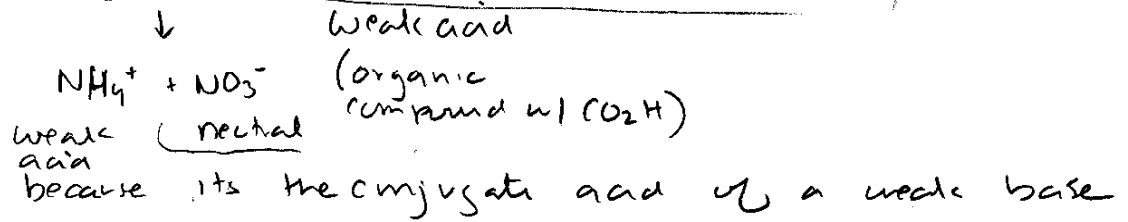 ↓ weak acid
NH4+ + NO3- (organic
compound w/ CO2H)
weak neutral
acid
because its the conjugate acid of a weak base